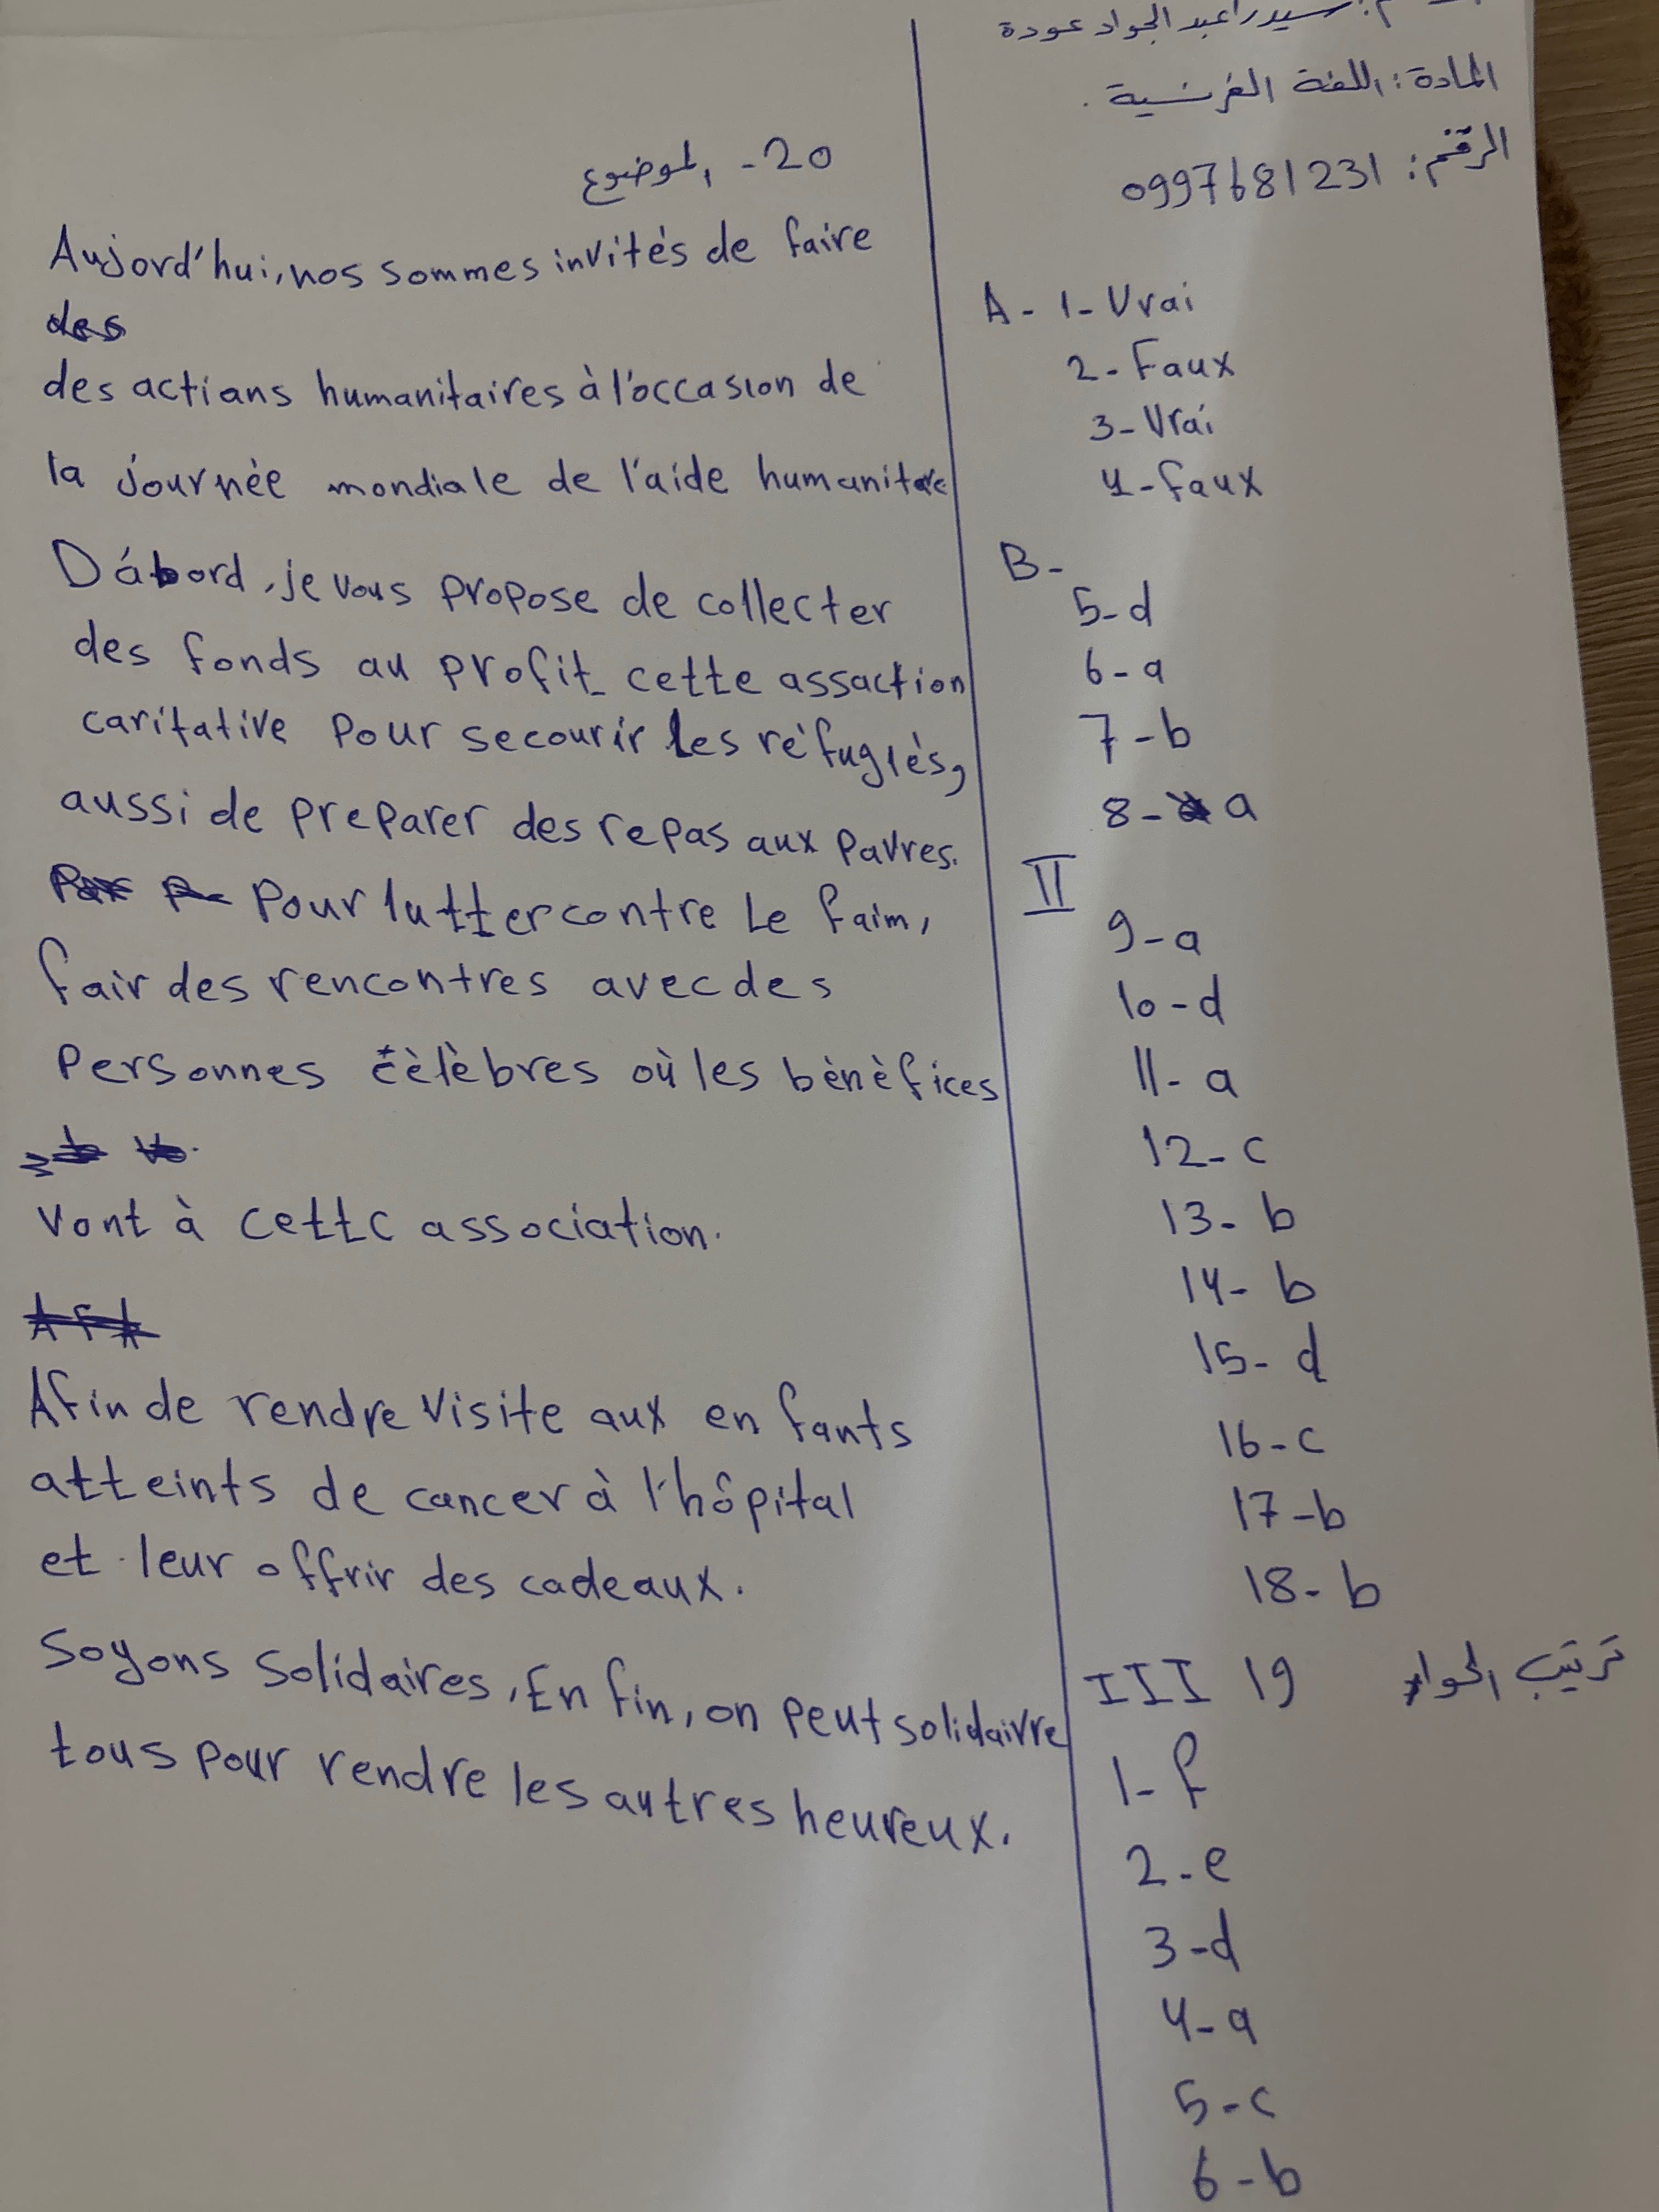 سيدرا عبد الجواد عودة
المادة: اللغة الفرنسية.
الرقم: 0997681231
A- 1- Vrai
2- Faux
3- Vrai
4- Faux
B-
5- d
6- a
7- b
8- a
II
9- a
10- d
11- a
12- c
13- b
14- b
15- d
16- c
17- b
18- b
III 19 ترتيب الحوار
1- f
2- e
3- d
4- a
5- c
6- b
20- الموضوع
Aujord'hui, nos sommes invités de faire
des
des actians humanitaires à l'occasion de
la journée mondiale de l'aide humanitare
D'abord, je vous propose de collecter
des fonds au profit cette assaction
caritative pour secourir les réfugiés,
aussi de preparer des repas aux pavres.
Pour lutter contre Le faim,
fair des rencontres avec des
personnes célèbres où les bénéfices
vont à cette association.
Afin de rendre visite aux enfants
atteints de cancer à l'hôpital
et leur offrir des cadeaux.
Soyons solidaires, En fin, on peut solidaivre
tous pour rendre les autres heureux.